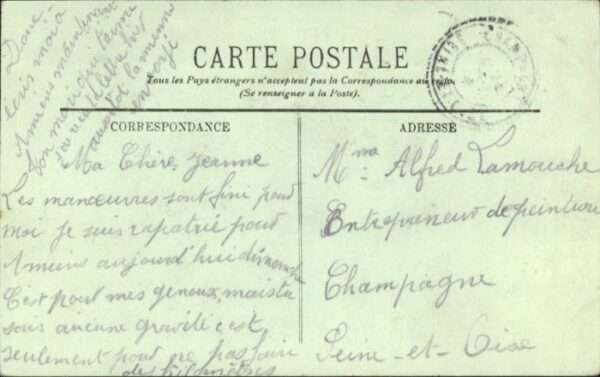 Donc
écris moi à
Amiens maintenant
ton mari qui t'aime
CARTE POSTALE
Tous les Pays étrangers n'acceptent pas la Correspondance au
(Se renseigner à la Poste).
CORRESPONDANCE
Ma Chère Jeanne
Les manœuvres sont fini pour
moi je suis rapatrié pour
Amiens aujourd'hui dimanche
C'est pour mes genoux, mais
sous aucune gravité c'est
seulement pour ne pas faire
des kilomètres
ADRESSE
Mme Alfred Lamouche
Entrepreneur de peinture
Champagne
Seine-et-Oise